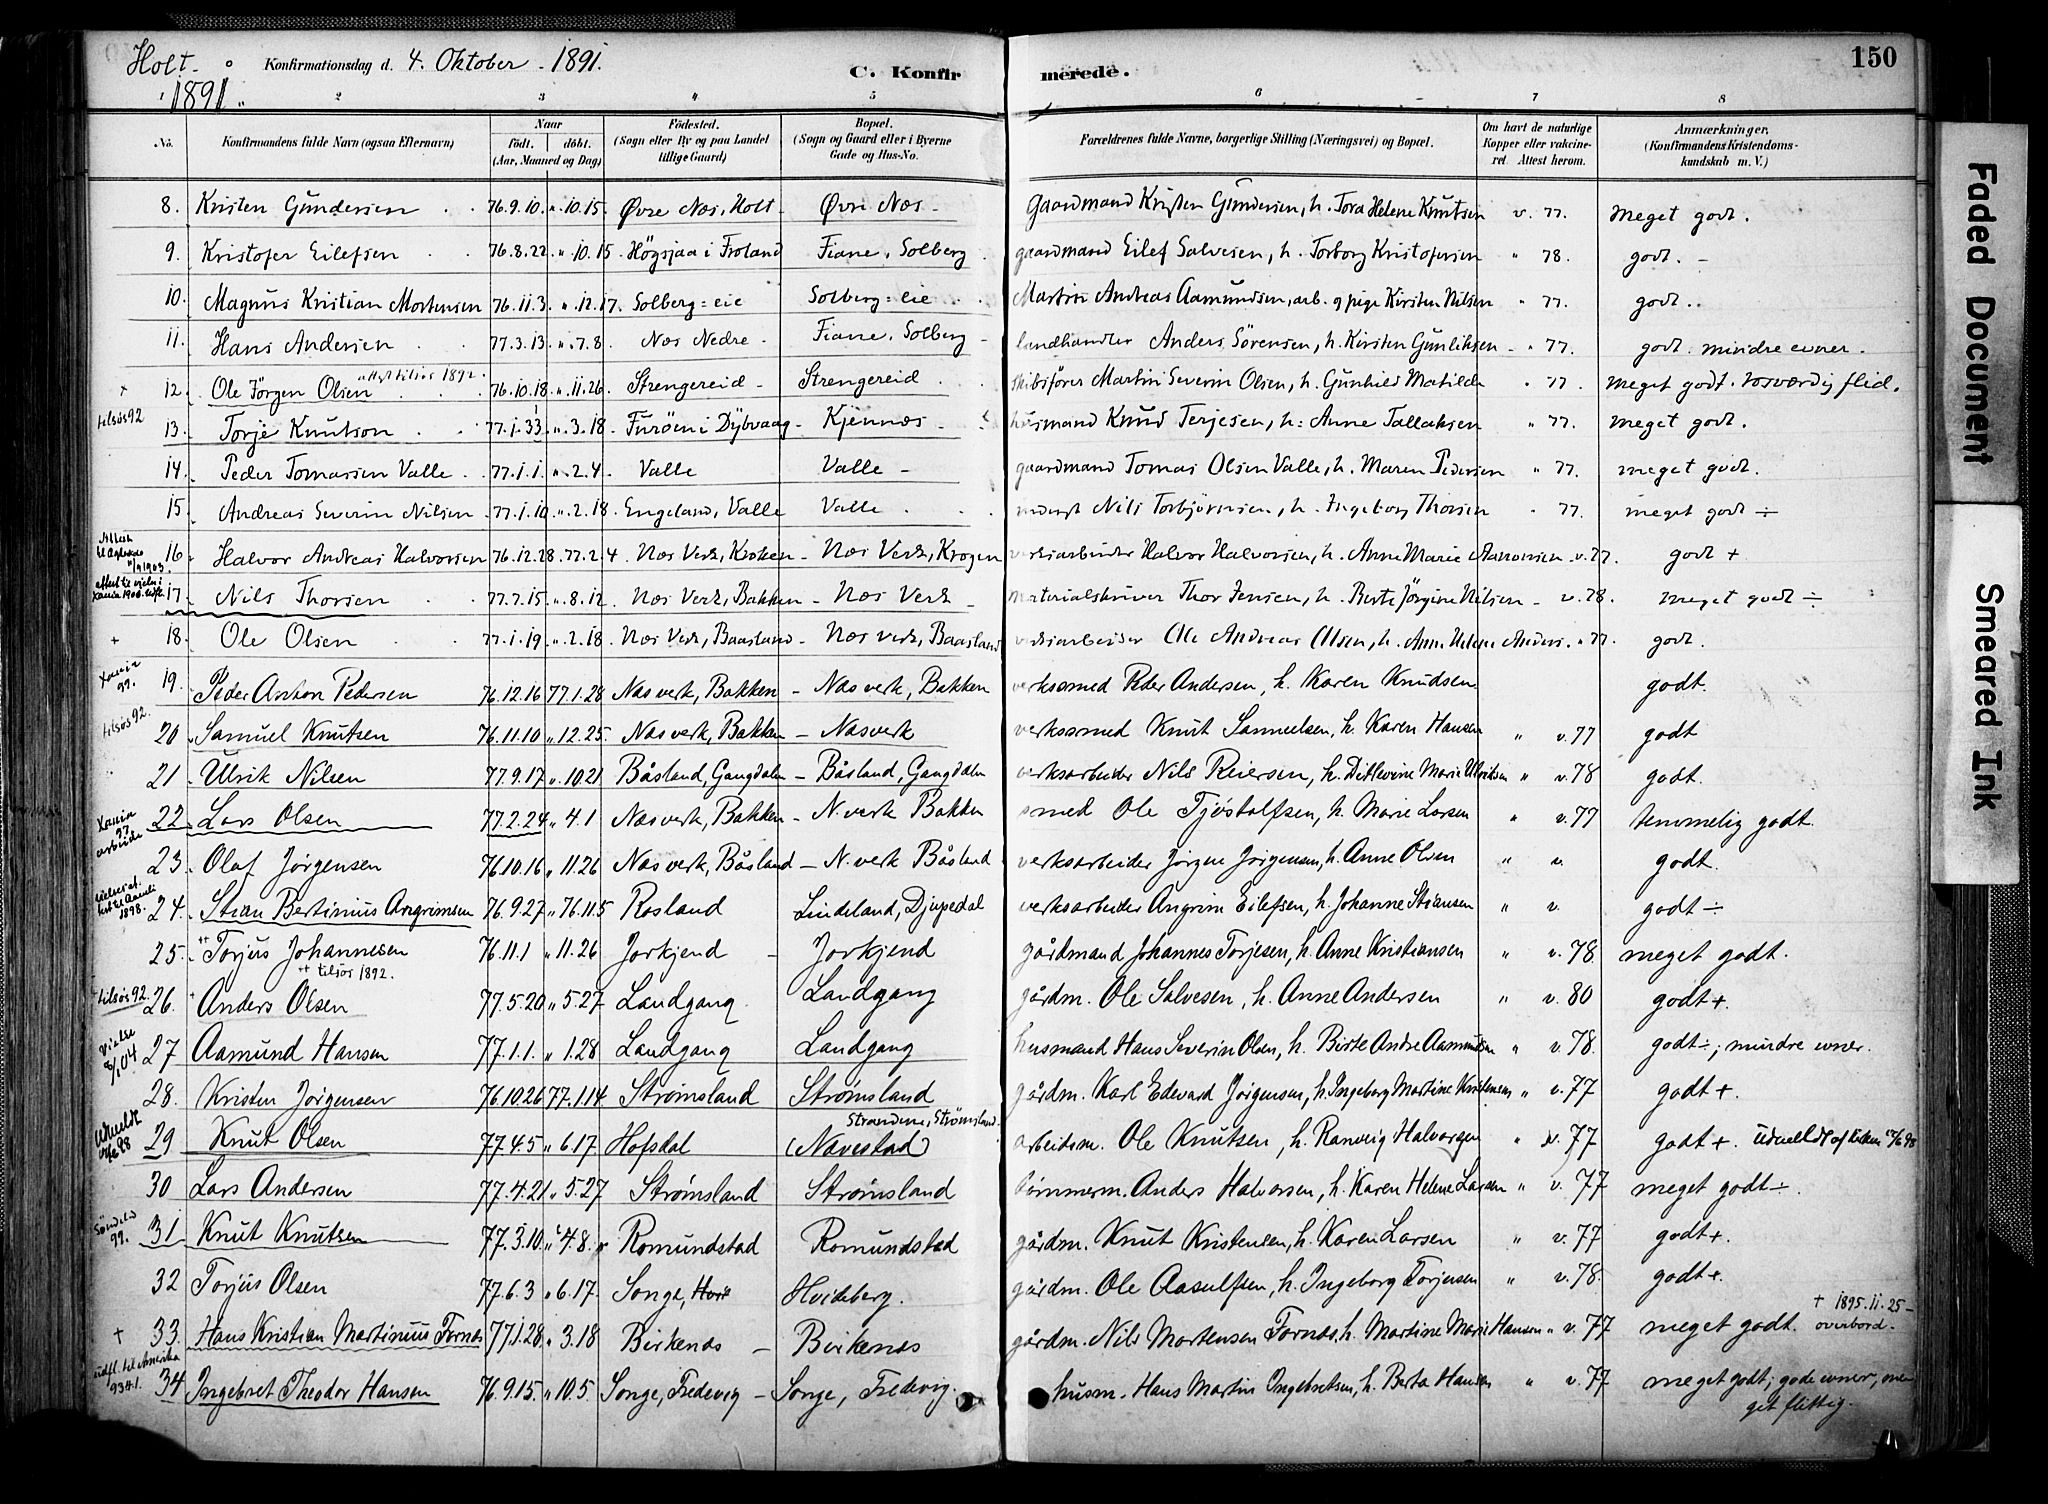 Holt. Konfirmationsdag d. 4. Oktober - 1891. C. Konfirmerede. 150
1891.
1 2 3 4 5 6 7 8
No. Konfirmandens fulde Navn (ogsaa Efternavn) Naar født. døbt. (Aar, Maaned og Dag) Fødested. (Sogn eller By og paa Landet tillige Gaard) Bopæl. (Sogn og Gaard eller i Byerne Gade og Hus-No. Forældrenes fulde Navne, borgerlige Stilling (Næringsvei) og Bopæl. Om havt de naturlige Kopper eller vakcineret. Attest herom. Anmærkninger. (Konfirmandens Kristendomskundskab m. V.)
8. Kristen Gundersen 76.9.10. " 10.15. Øvre Næs, Holt - Øvre Næs - Gaardmand Kristen Gundersen, h. Tora Helene Knutsen v. 77. meget godt.
9. Kristofer Eilefsen 76.8.22 " 10.15 Högsjaa i Froland Fiane, Solberg gaardmand Eilef Salvesen, h. Torborg Kristofersen " 78. godt. -
10. Magnus Kristian Mortensen 76.11.3. " 12.17. Solberg=eie Solberg=eie Martin Andreas Aamundsen, arb. og pige Kirsten Nilsen " 77. godt..
11. Hans Andersen 77.3.13. " 7.8. Næs Nedre - Fiane, Solberg - landhandler Anders Sörensen, h. Kirsten Gunliksen - " 77. godt. mindre evner.
+ 12. Ole Jörgen Olsen attest tilsjös 1892. 76.10.18 " 11.26. Strengereid - Strengereid skibsfører Martin Severin Olsen, h. Gunhild Matilde " 77. meget godt. rosværdig flid.
tilsøs 92 13. Torje Knutson 77.1.33. " 3.18 Furöen i Dybvaag - Kjennæs - husmand Knud Terjesen, h: Anne Tallaksen " 77. meget godt.
14. Peder Tomassen Valle 77.1.1. " 2.4. Valle Valle - gaardmand Tomas Olsen Valle, h. Maren Pedersen " 77. meget godt.
15. Andreas Severin Nilsen 77.1.10 " 2.18. Engeland, Valle Valle Nils Torbjörnsen, h. Ingeborg Thorsen " 77. meget godt ÷
16. Halvor Andreas Halvorsen 76.12.28. 77.2.4. Næs Verk, Kroken - Næs Verk, Krogen verksarbeider Halvor Halvorsen, h. Anne Marie Aanonsen - v. 77. godt +
17. Nils Thorsen 77.7.15 " 8.12. Næs Verk, Bakken - Næs Verk - materialskriver Thor Jensen, h. Berte Jörgine Nilsen - v. 78. meget godt ÷
+ 18. Ole Olsen 77.1.19 " 2.18 - Næs Verk, Baasland - Næs verk, Baasland verksarbeider Ole Andreas Olsen, h. Anne Helene Anders. " 77. godt.
Xania 99. 19. Peder Anton Pedersen 76.12.16 77.1.28 Næs verk, Bakken - Næs verk, Bakken verkssmed Peder Andersen, h. Karen Knudsen. godt.
tilsøs 92. 20. Samuel Knutsen 76.11.10 " 12.25. Næs verk, Bakken - Næsverk verkssmed Knut Samuelsen, h. Karen Hansen " v. 77 godt
21. Ulrik Nilsen 77.9.17 " 10.21 Båsland, Gangdalen - Båsland, Gangdalen verksarbeider Nils Reiersen, h. Ditlevine Marie Ulriksen " v. 78 godt.
Xania 97. arbeide 22. Lars Olsen 77.2.24 " 4.1 Næsverk, Bakken - N. verk Bakken smed Ole Tjöstolfsen, h. Marie Larsen " v. 77 temmelig godt.
23. Olaf Jörgensen 76.10.16 " 11.26 Næsverk, Båsland - N. verk Båsland verksarbeider Jörgen Jörgensen, h. Anne Olsen " v. godt.
24. Stian Bertinius Angrimsen 76.9.27 " 76.11.5 Rosland Lindeland, Djupedal verksarbeider Angrim Eilefsen, h. Johanne Stiansen " v. godt ÷
25. Torjus Johannesen 76.11.1 " 11.26 Jorkjend - Jorkjend gårdmand Johannes Torjesen, h. Anne Kristiansen " v. 78 meget godt.
tilsjös 1892.
tilsøs 92. 26. Anders Olsen 77.5.20 " 5.27 Landgang. Landgang gårdm. Ole Salvesen, h. Anne Andersen " v. 80 godt +.
vielse 3/1 04 27 Aamund Hansen 77.1.1. " 1.28 Landgang Landgang husmand Hans Severin Olsen, h. Birte Andre Aamundsen " v. 78. godt ÷; mindre evner.
28. Kristen Jörgensen 76.10.26 77.1.14 Strømsland Strømsland gårdm. Karl Edevard Jörgensen, h. Ingeborg Martine Kristensen " v. 77 godt +.
29 Knut Olsen 77.4.5 " 6.17 Hofsdal (Navestad) Strandene, Strømsland. arbeidsm. Ole Knutsen, h. Ranveig Halvorsen " v. 77 godt +. udmeldt af kirken 98
30 Lars Andersen 77.4.21 " 5.27 Strømsland Strømsland tömmerm. Anders Halvorsen, h. Karen Helene Larsen " v. 77 meget godt ÷.
Söndeled 99. 31. Knut Knutsen 77.3.10 " 4.8. Romundstad Romundstad gårdm. Knut Kristensen, h. Karen Larsen " v. 77 godt +.
32 Torjus Olsen 77.6.3 " 6.17. Songe, Hvideberg. gårdm. Ole Aasulfsen, h. Ingeborg Torjusen " v. 78. godt +.
+ 33. Hans Kristian Martinius Tornæs 77.1.28. " 3.18 Birkenæs - Birkenæs gårdm. Nils Mortensen Tornæs, h. Martine Marie Hansen " v. 77 meget godt. + 1895.11.25 - overbord.
udfl. til Amerika 93 4/1. 34 Ingebret Theodor Hansen 76.9.15. " 10.5 Songe, Fredevig - Songe, Fredevig. husm. Hans Martin Ingebretsen, h. Berta Hansen " v. 77 meget godt; gode evner, meget flittig.
Faded Document
Smeared Ink